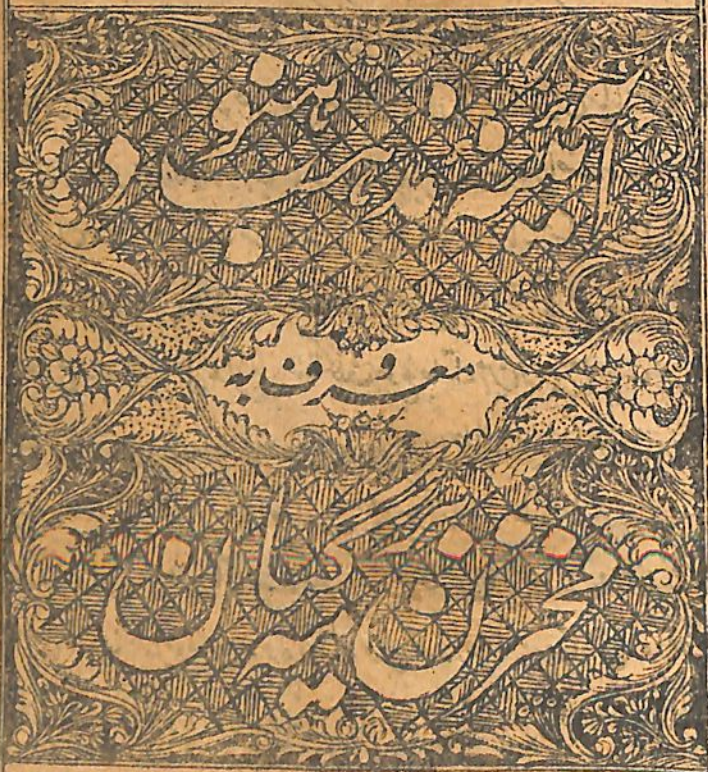 آئینہ مذاہب ہنود
معروف بہ
مخزن گیان